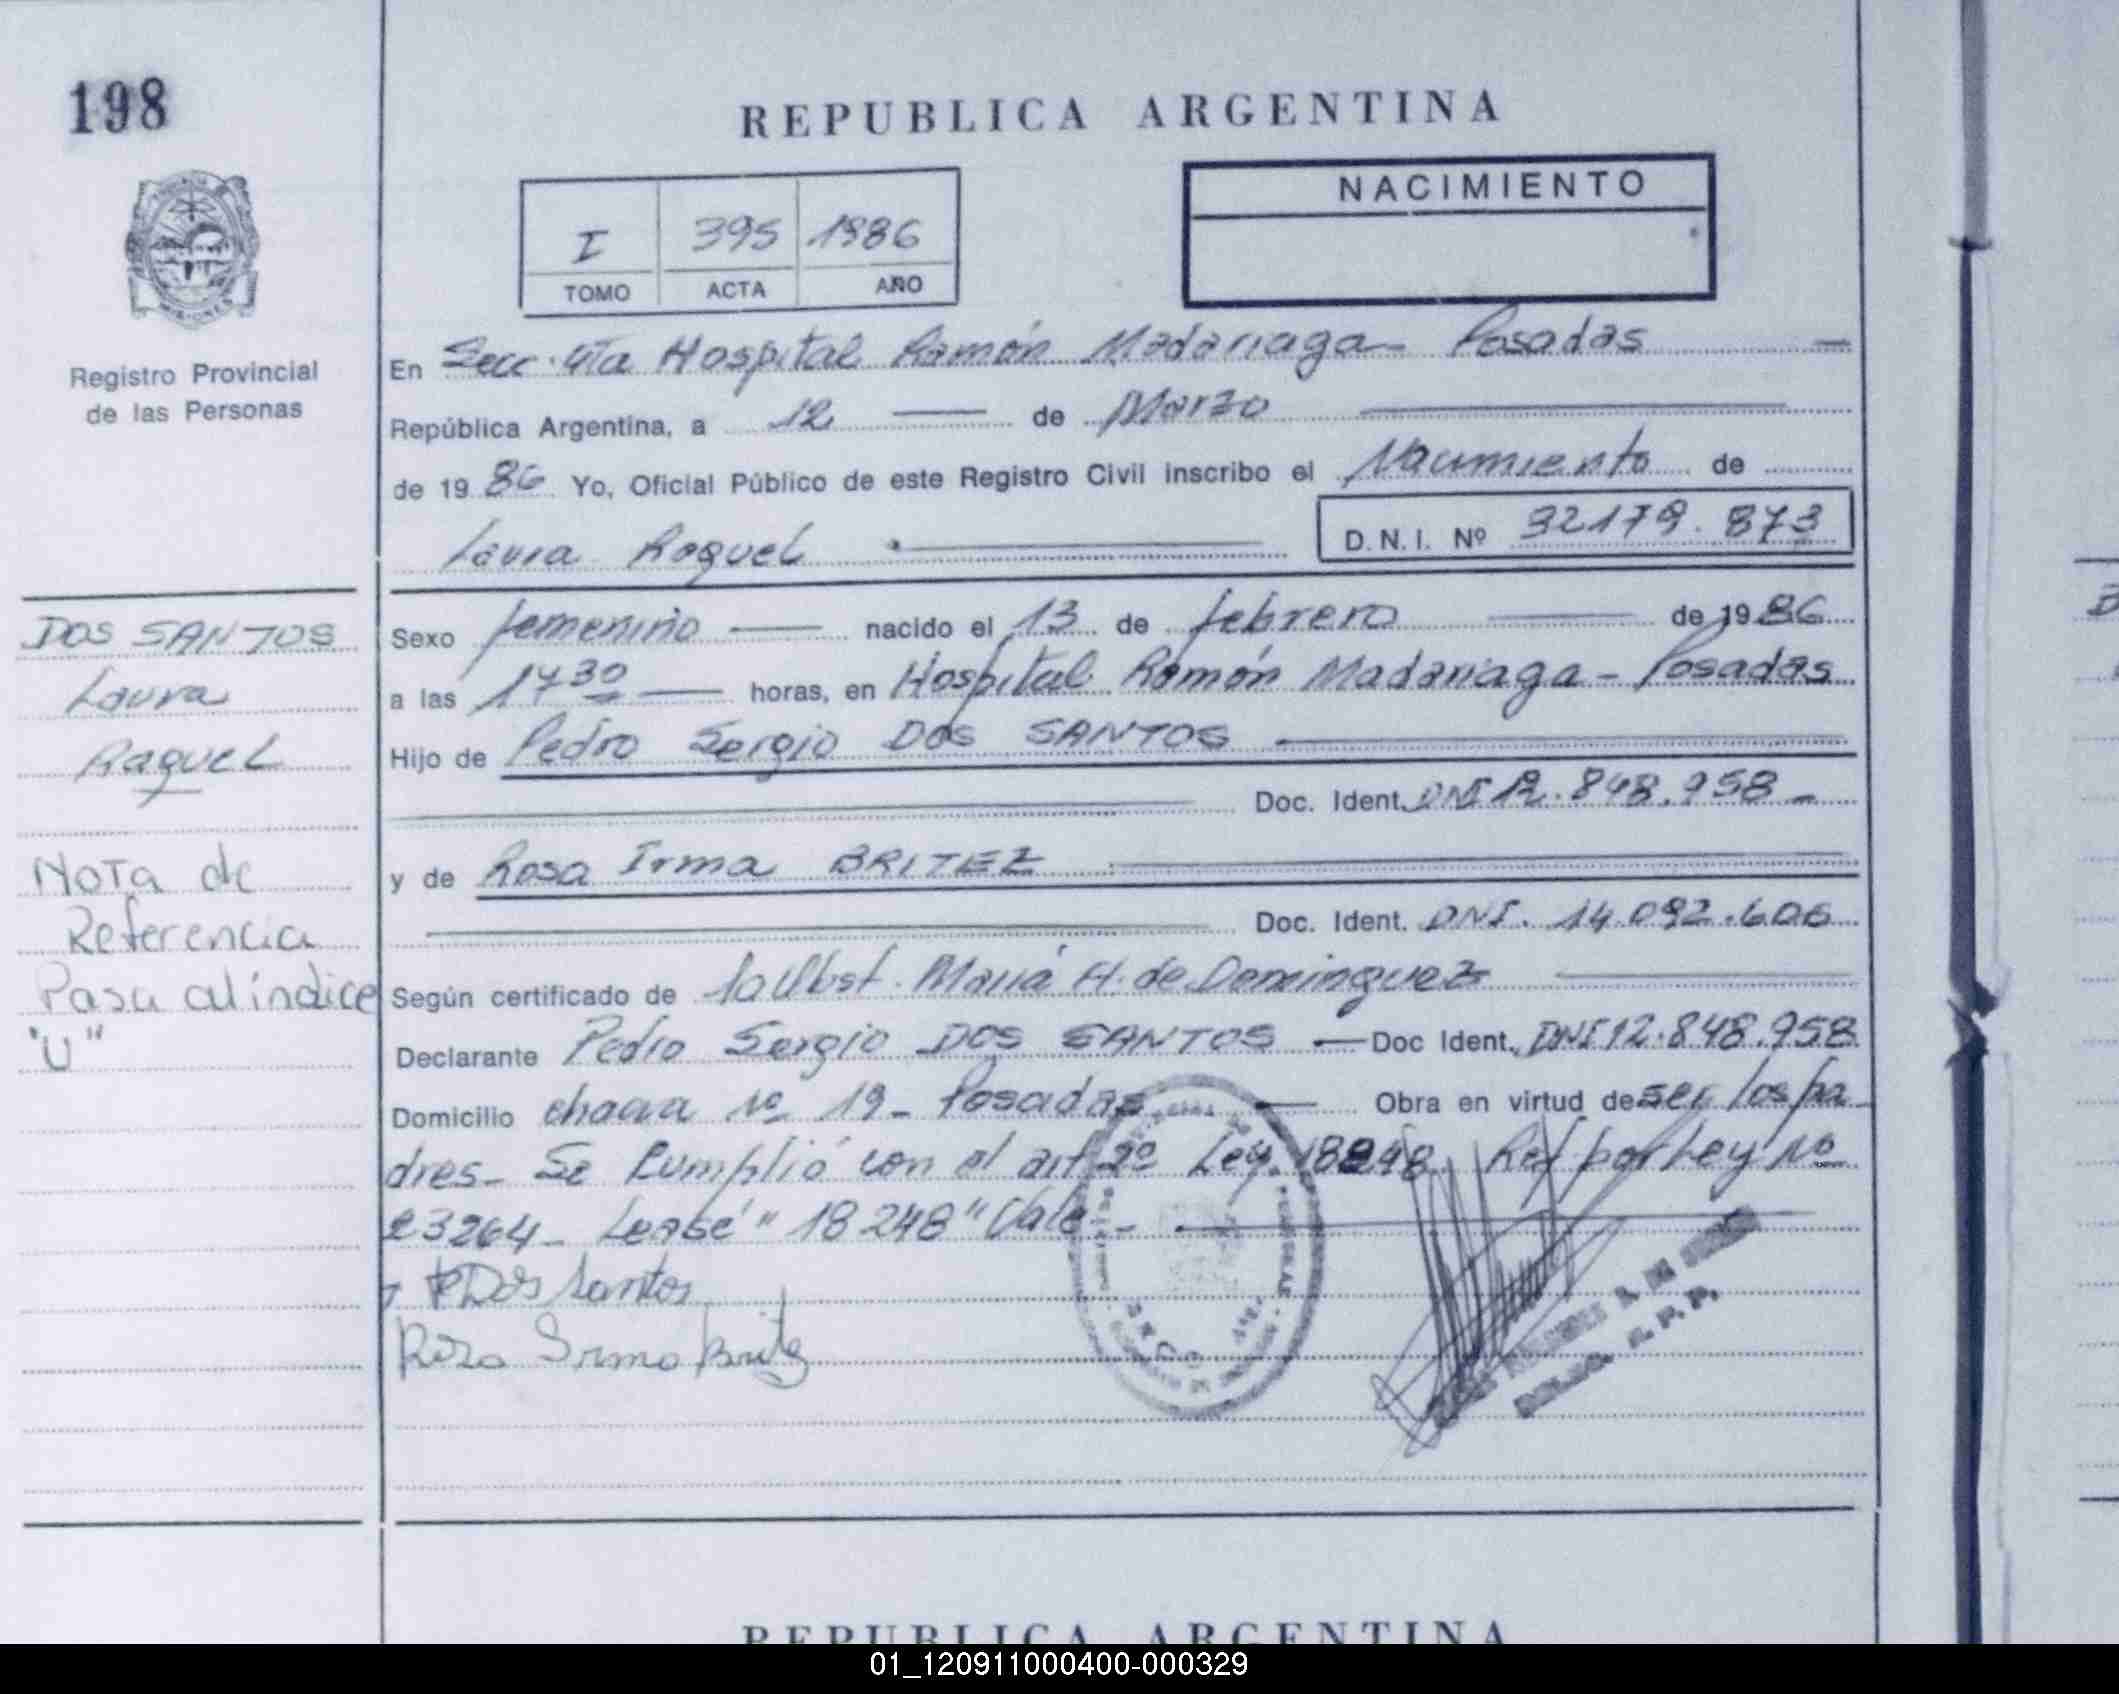 198
REPUBLICA ARGENTINA
NACIMIENTO
I 395 1986
TOMO ACTA AÑO
MISIONES
Registro Provincial
de las Personas
En Secc. 4ta Hospital Ramón Madariaga - Posadas —
República Argentina, a 12 — de Marzo —
de 1986 Yo, Oficial Público de este Registro Civil inscribo el Nacimiento de
Laura Raquel — D.N.I. Nº 32179.873
DOS SANTOS
Laura
Raquel
Sexo femenino — nacido el 13 de febrero — de 1986
a las 17 30 — horas, en Hospital Ramón Madariaga - Posadas
Hijo de Pedro Sergio DOS SANTOS —
Doc. Ident. DNI 12.848.958 -
y de Rosa Irma BRITEZ —
Doc. Ident. DNI. 14.092.606
Nota de
Referencia
Pasa al índice
"U"
Según certificado de la Obst. María H. de Dominguez —
Declarante Pedro Sergio DOS SANTOS — Doc Ident. DNI 12.848.958
Domicilio chacra Nº 19 - Posadas — Obra en virtud de ser los pa
dres - Se Cumplió con el art 2º Ley 18248 Ref por Ley Nº
23264 - Lease "18248" Vale -
P Dos Santos
Rosa Irma Britez
R. P. P.
REPUBLICA ARGENTINA
01_120911000400-000329